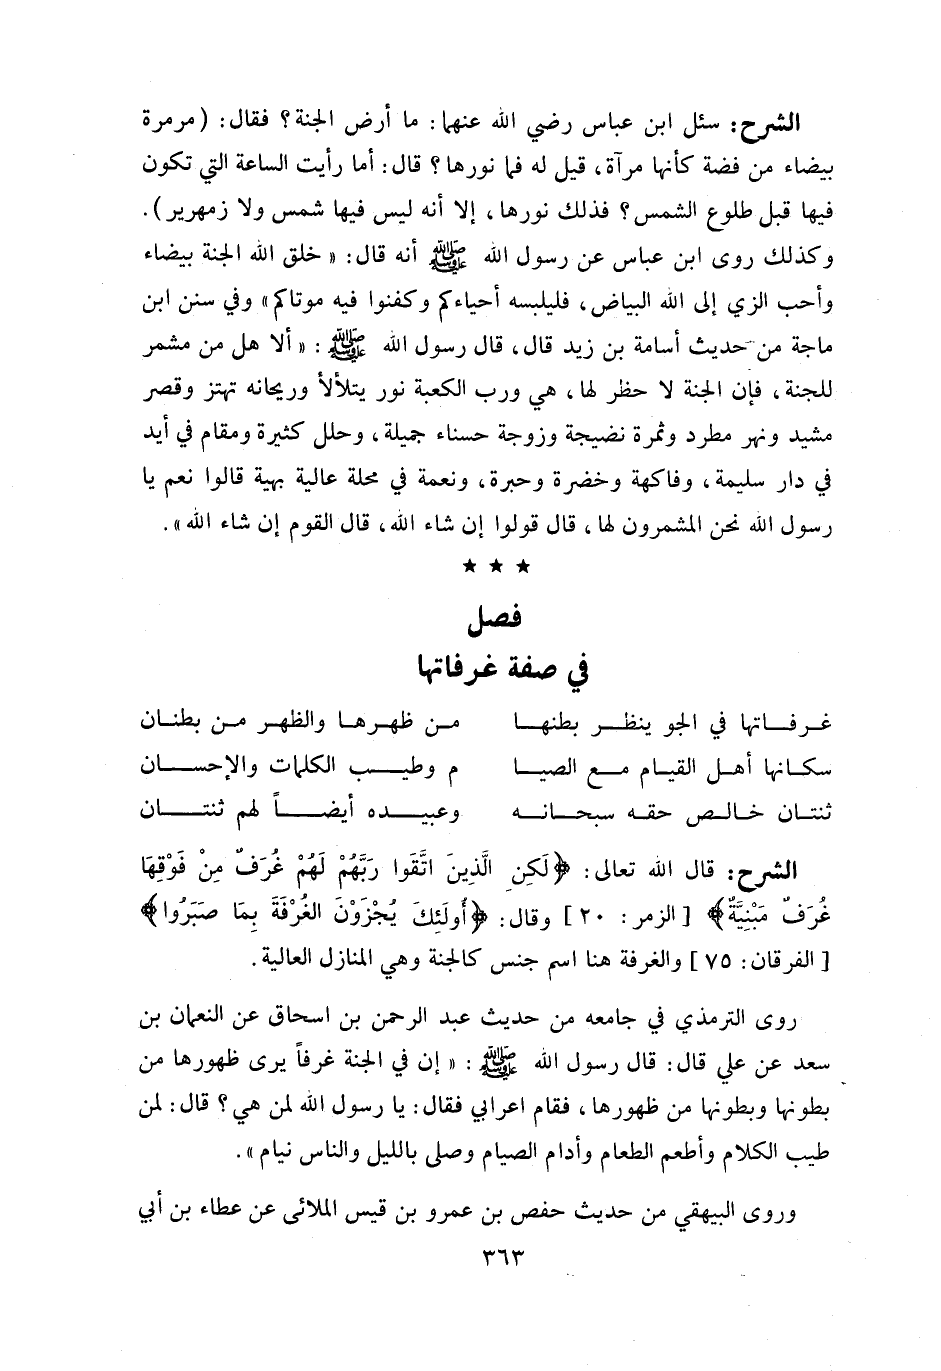 الشرح: سئل ابن عباس رضي الله عنهما: ما أرض الجنة؟ فقال: (مرمرة
بيضاء من فضة كأنها مرآة، قيل له فما نورها؟ قال: أما رأيت الساعة التي تكون
فيها قبل طلوع الشمس؟ فذلك نورها، إلا أنه ليس فيها شمس ولا زمهرير).
وكذلك روى ابن عباس عن رسول الله ﷺ أنه قال: «خلق الله الجنة بيضاء
وأحب الزي إلى الله البياض، فليلبسه أحياءكم وكفنوا فيه موتاكم» وفي سنن ابن
ماجة من حديث أسامة بن زيد قال، قال رسول الله ﷺ: «ألا هل من مشمر
للجنة، فإن الجنة لا حظر لها، هي ورب الكعبة نور يتلألأ وريحانه تهتز وقصر
مشيد ونهر مطرد وثمرة نضيجة وزوجة حسناء جميلة، وحلل كثيرة ومقام في أيد
في دار سليمة، وفاكهة وخضرة وحبرة، ونعمة في محلة عالية بهية قالوا نعم يا
رسول الله نحن المشمرون لها، قال قولوا إن شاء الله، قال القوم إن شاء الله».
★ ★ ★
فصل
في صفة غرفاتها
غرفاتها في الجو ينظر بطنها من ظهرها والظهر من بطنان
سكانها أهل القيام مع الصيا م وطيب الكلمات والإحسان
ثنتان خالص حقه سبحانه وعبيده أيضاً لهم ثنتان
الشرح: قال الله تعالى: ﴿لَكِنِ الَّذِينَ اتَّقَوا رَبَّهُمْ لَهُمْ غُرَفٌ مِنْ فَوْقِهَا
غُرَفٌ مَبْنِيَّةٌ﴾ [الزمر: ٢٠] وقال: ﴿أُولَئِكَ يُجْزَوْنَ الغُرْفَةَ بِمَا صَبَرُوا﴾
[الفرقان: ٧٥] والغرفة هنا اسم جنس كالجنة وهي المنازل العالية.
روى الترمذي في جامعه من حديث عبد الرحمن بن اسحاق عن النعمان بن
سعد عن علي قال: قال رسول الله ﷺ: «إن في الجنة غرفاً يرى ظهورها من
بطونها وبطونها من ظهورها، فقام اعرابي فقال: يا رسول الله لمن هي؟ قال: لمن
طيب الكلام وأطعم الطعام وأدام الصيام وصلى بالليل والناس نيام».
وروى البيهقي من حديث حفص بن عمرو بن قيس الملائى عن عطاء بن أبي
٣٦٣